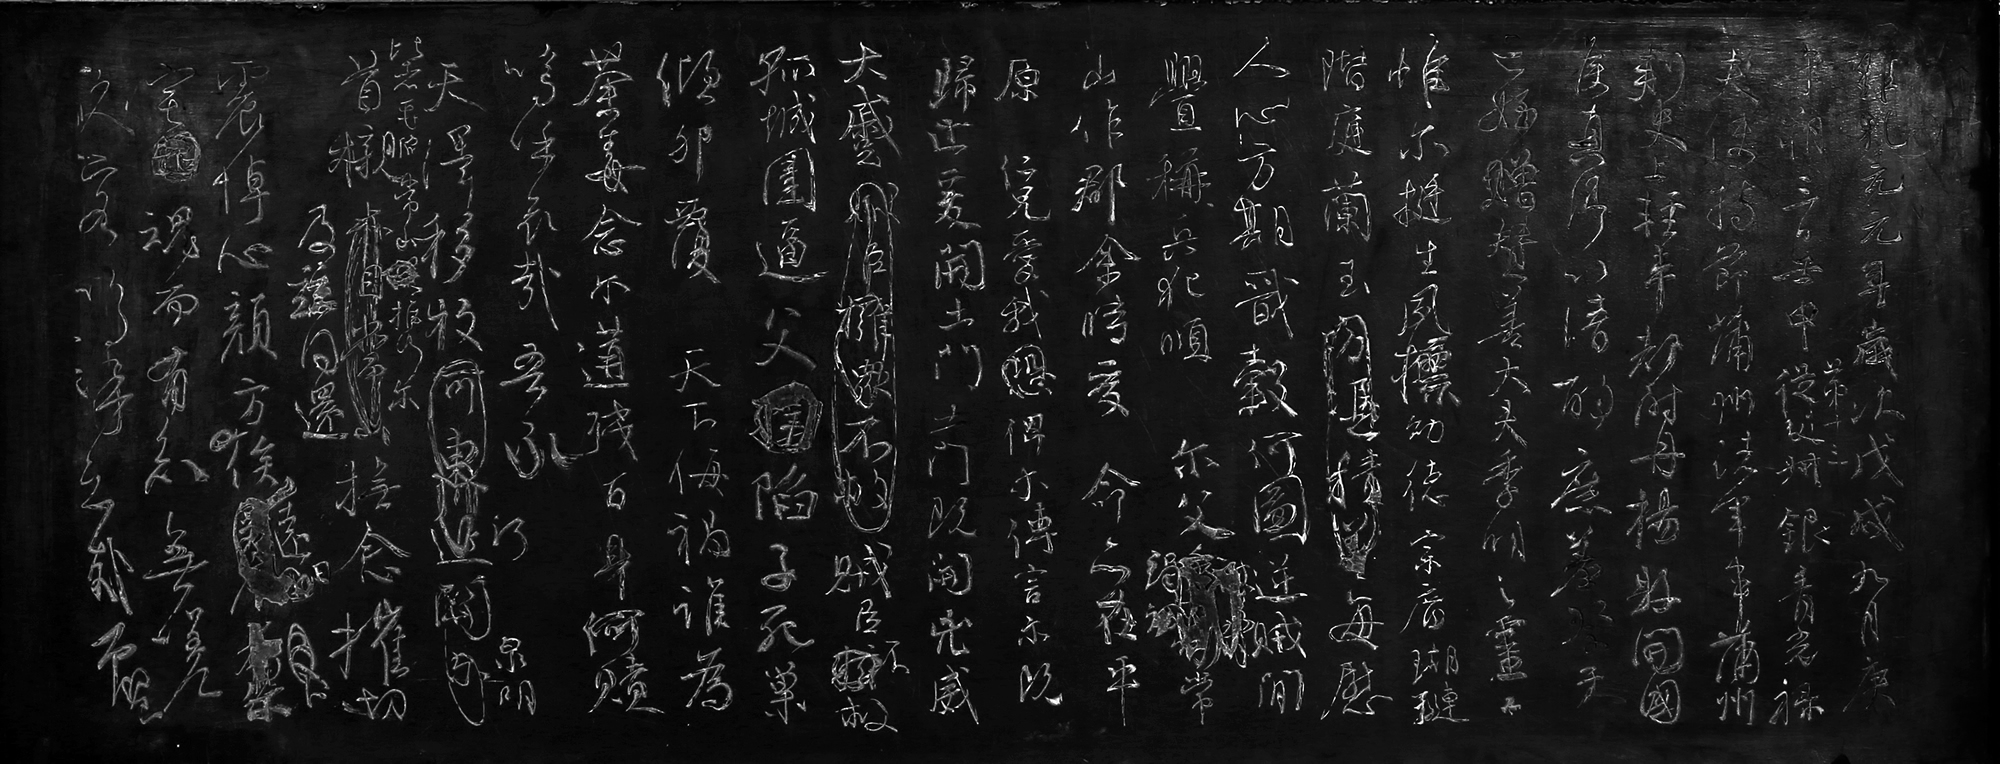 維乾元元年歲次戊戌九月庚
午朔三日壬申第十三從父叔銀青光祿
夫使持節蒲州諸軍事蒲州
刺史上輕車都尉丹楊縣開國
侯真卿以清酌庶羞祭于
亡姪贈贊善大夫季明之靈曰
惟爾挺生夙標幼德宗廟瑚璉
階庭蘭玉方憑積善每慰
人心方期戩穀何圖逆賊閒
釁稱兵犯順爾父竭誠常
山作郡余時受命亦在平
原仁兄愛我恐俾爾傳言爾既
歸止爰開土門土門既開凶威
大蹙賊臣擁眾不救賊臣不救
孤城圍逼父陷子死巢
傾卵覆天不悔禍誰為
荼毒念爾遘殘百身何贖
嗚呼哀哉吾承
天澤移牧河東近河關泉明
比者再陷常山攜爾
首櫬亦自常及茲同還撫念摧切
震悼心顏方俟遠日卜
宅魂而有知無嗟
久客嗚呼哀哉尚饗